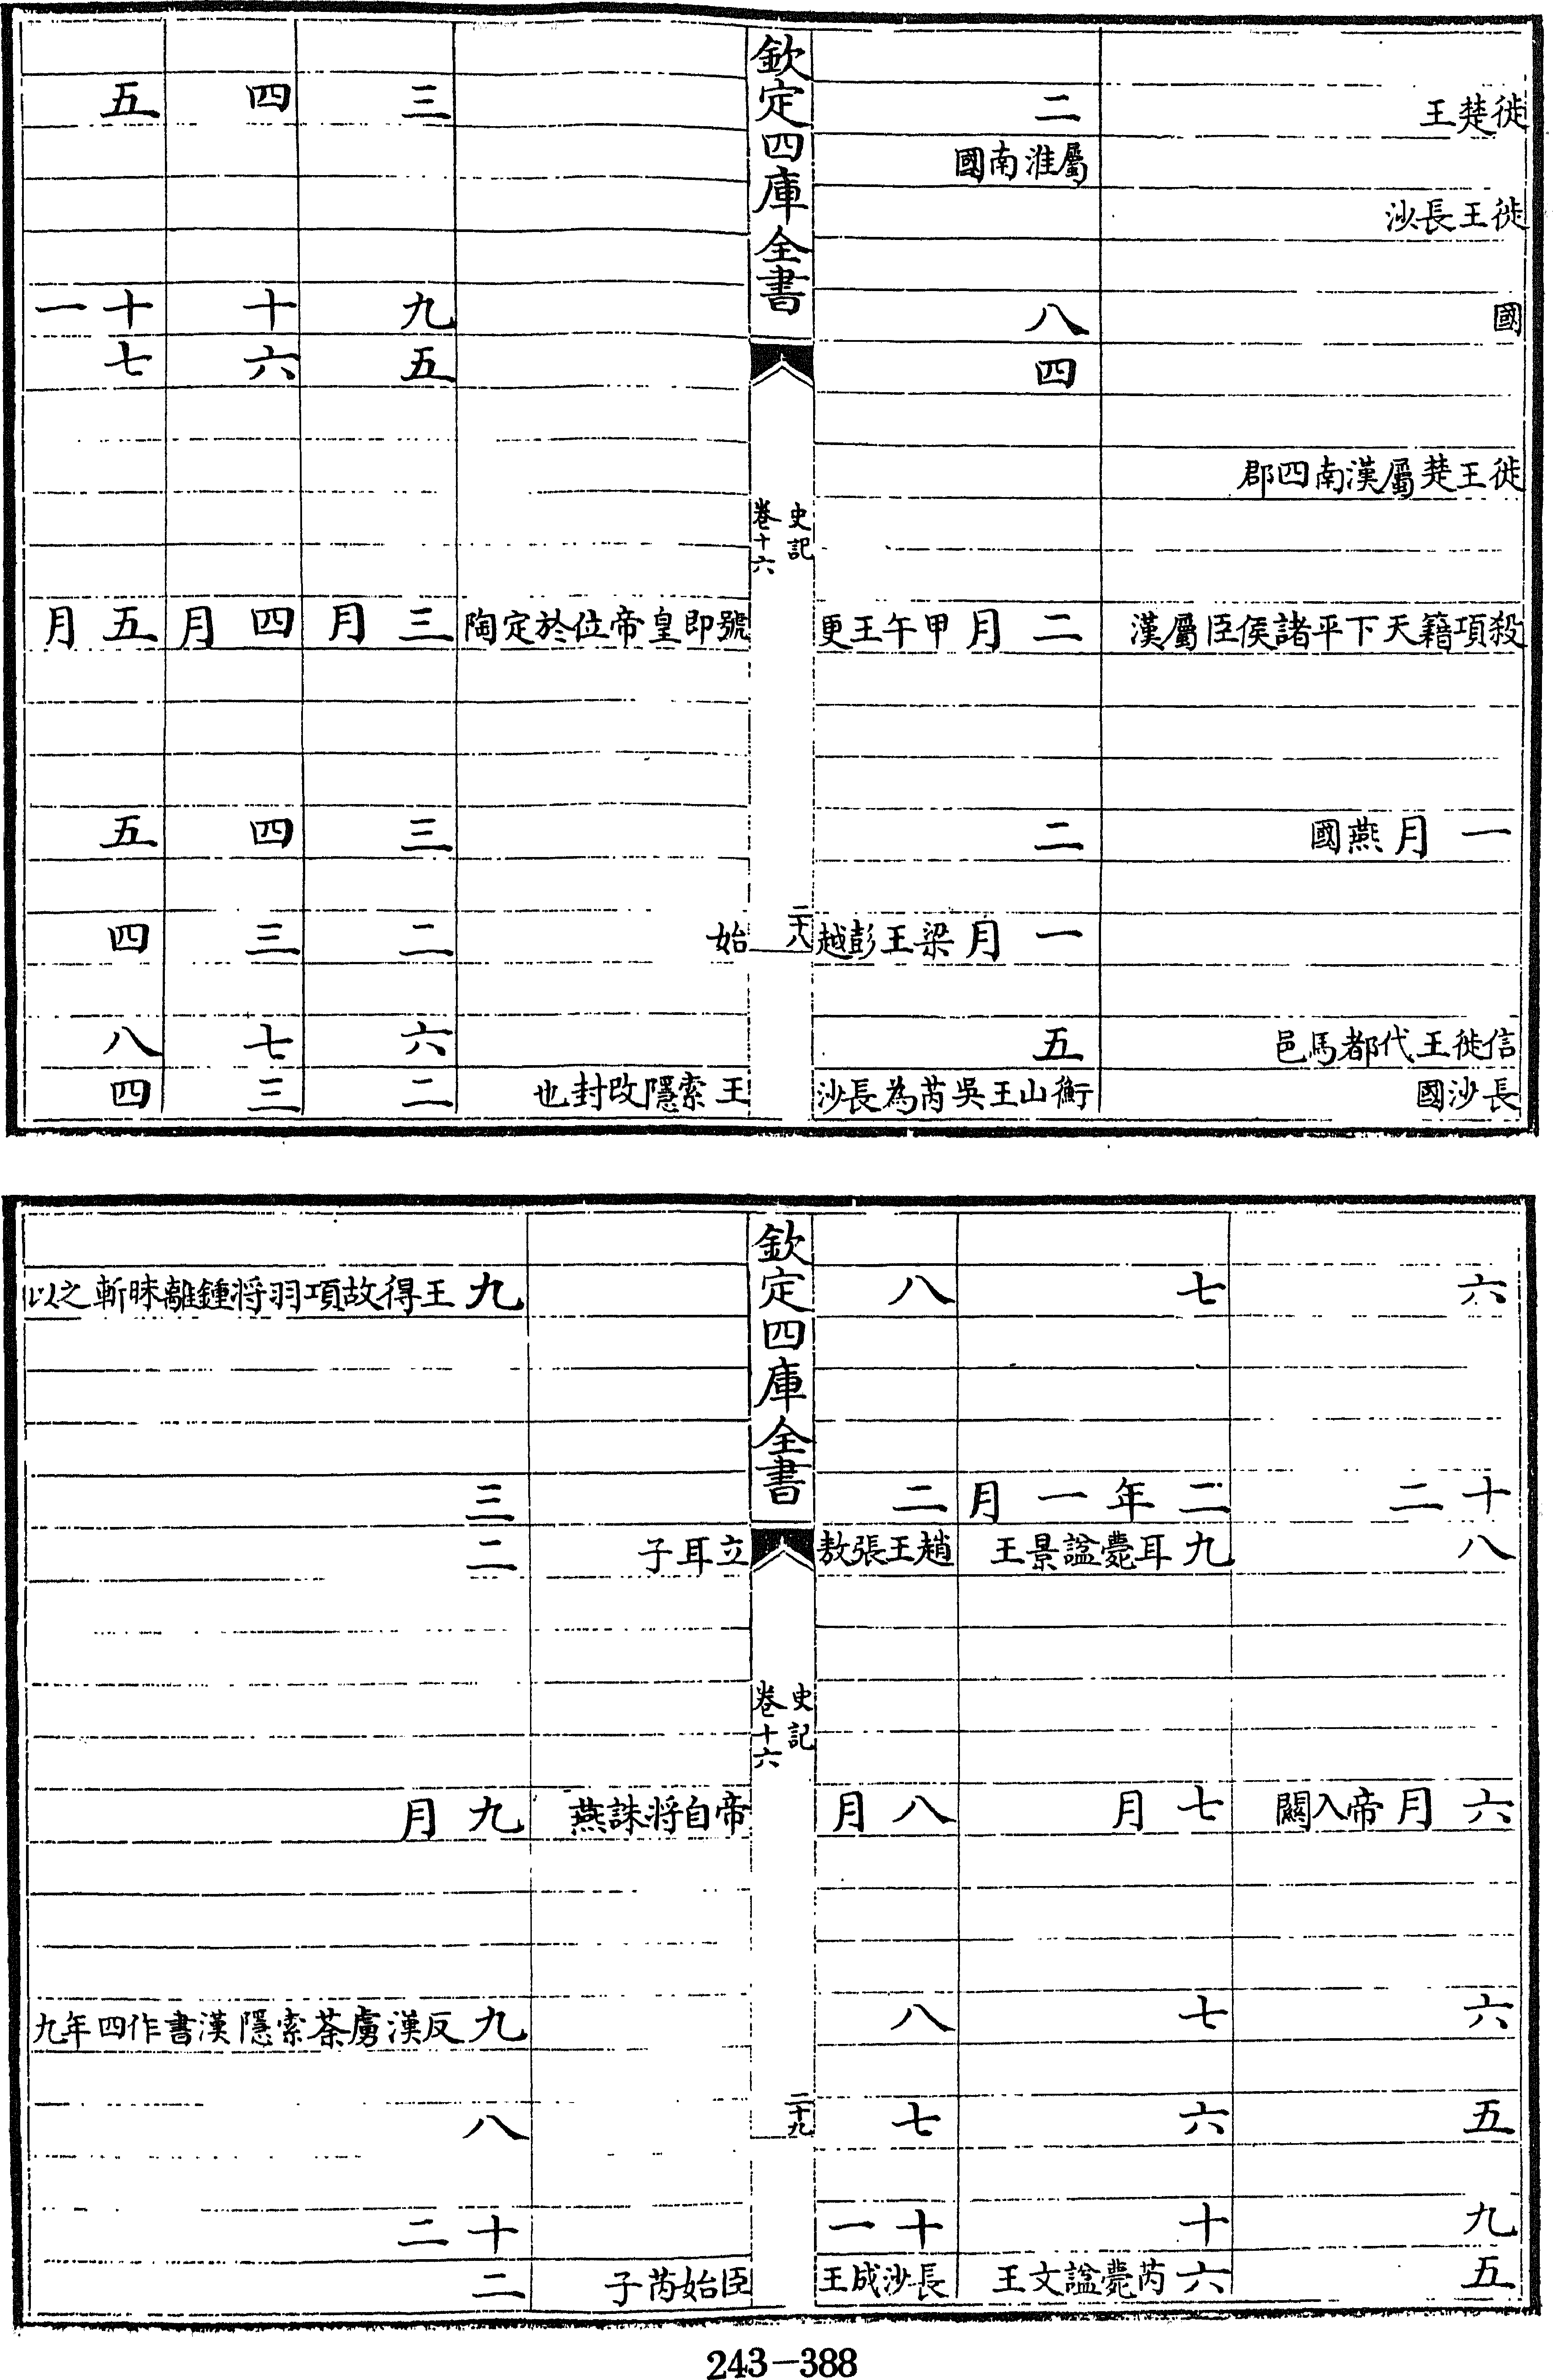 徙楚王
徙王長沙
國
徙王楚屬漢南四郡
殺項籍天下平諸侯臣屬漢
一月燕國
信徙王代都馬邑
長沙國
二
屬淮南國
八
四
二月甲午王更
二
一月梁王彭越
五
衡山王吳芮為長沙
欽定四庫全書
史記
卷十六
二十八
號即皇帝位於定陶
始
王索隱改封也
三
九
五
三月
三
二
六
二
四
十
六
四月
四
三
七
三
五
十一
七
五月
五
四
八
四
六
十二
八
六月帝入關
六
五
九
五
七
二年一月
九耳薨諡景王
七月
七
六
十
六芮薨諡文王
八
二
趙王張敖
八月
八
七
十一
長沙成王
欽定四庫全書
史記
卷十六
二十九
立耳子
帝自將誅燕
臣始芮子
九王得故項羽將鍾離眛斬之以
三
二
九月
九反漢虜荼索隱漢書作四年九
八
十二
二
243-388